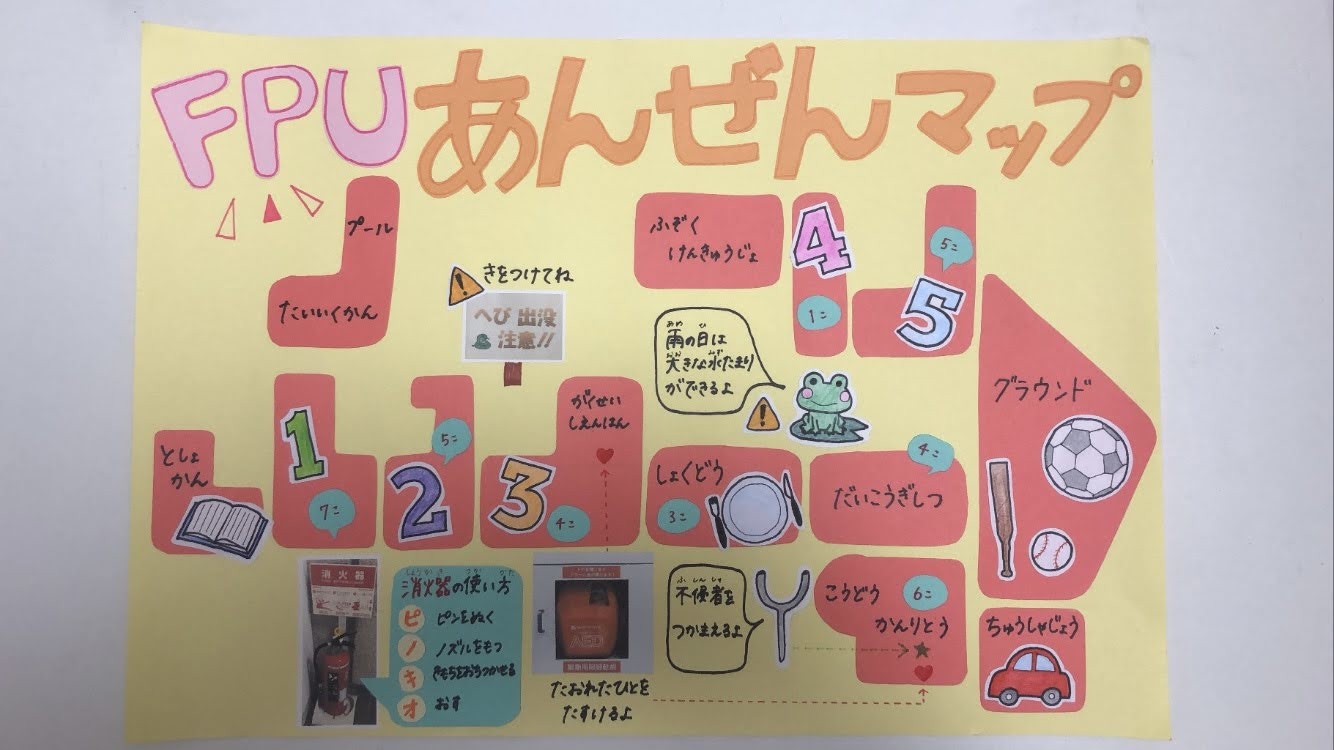 FPU あんぜんマップ
プール
たいいくかん
きをつけてね
へび 出没
注意!!
ふぞく
けんきゅうじょ
4
1こ
5こ
5
あめ ひ
雨の日は
おお みず
大きな水たまり
ができるよ
グラウンド
としょ
かん
1
7こ
5こ
2
がくせい
しえんはん
3
4こ
しょくどう
3こ
4こ
だいこうぎしつ
消火器
しょうかき つか かた
消火器の使い方
ピ ピンをぬく
ノ ノズルをもつ
キ きもちをおちつかせる
オ おす
AED
たおれたひとを
たすけるよ
ふしんしゃ
不侵者を
つかまえるよ
こうどう
かんりとう
6こ
ちゅうしゃじょう